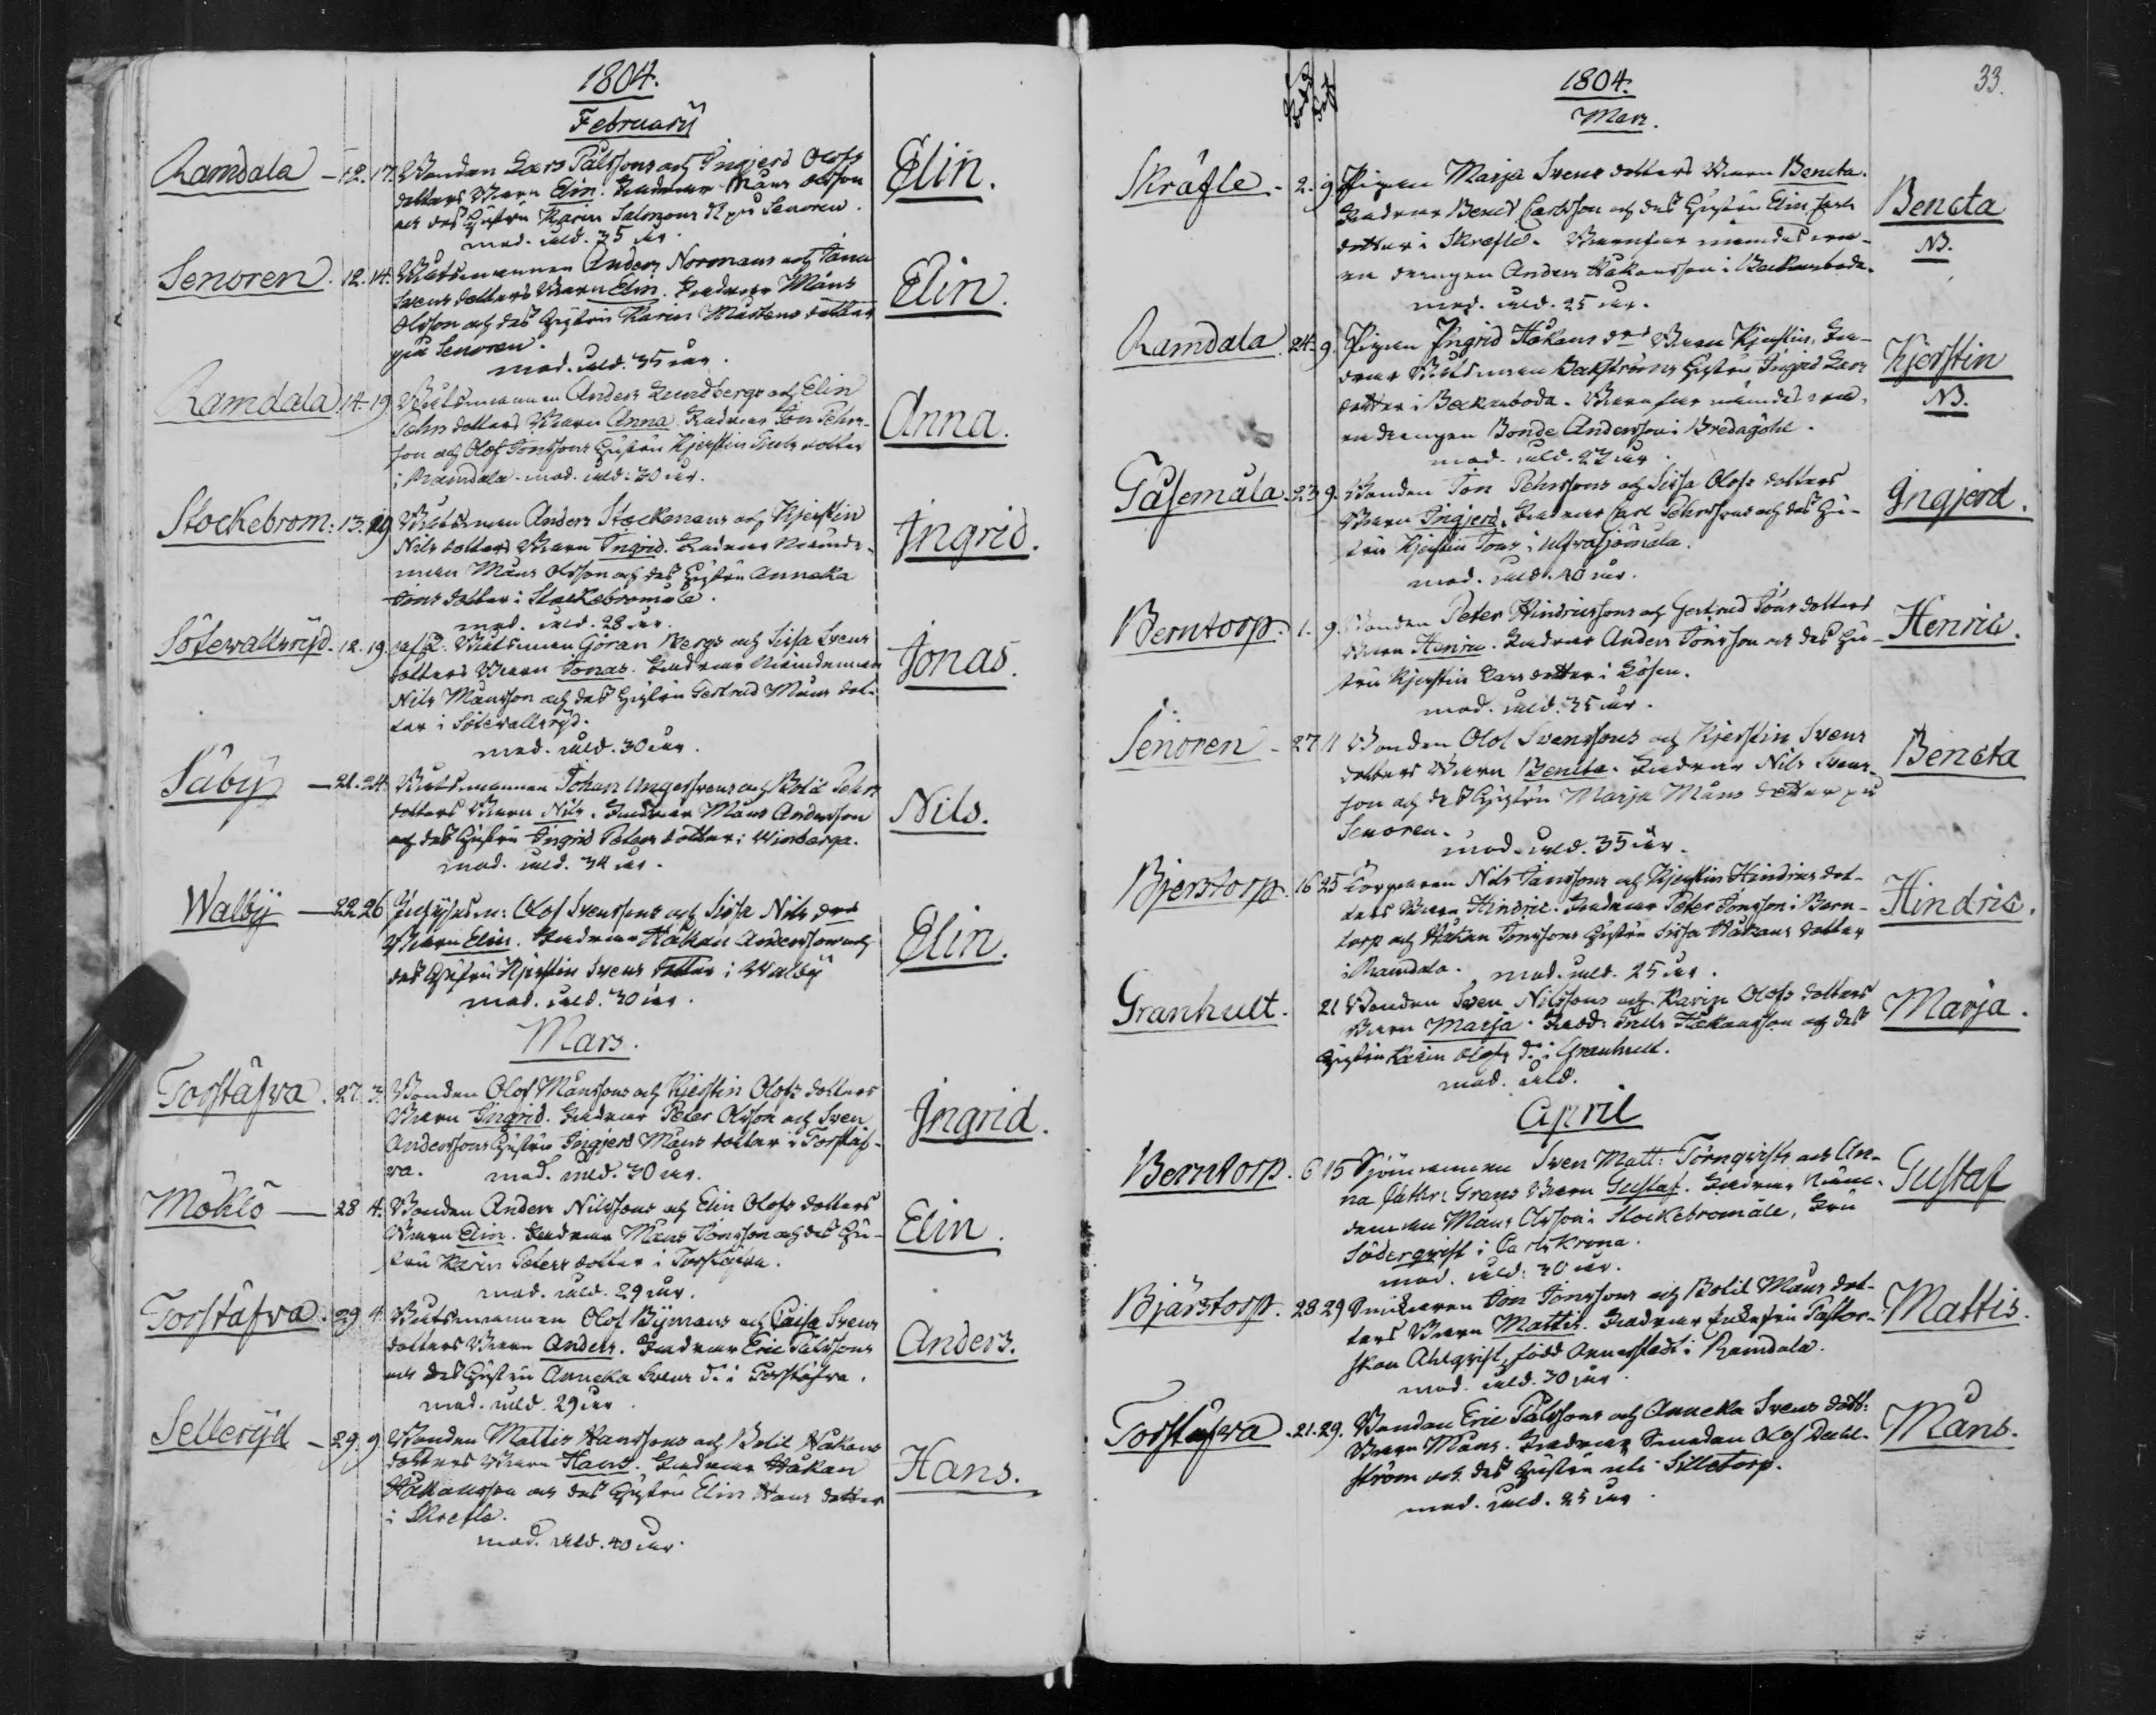 1804.
February
Ramdala - 12. 17. Bonden Lars Pålssons och Ingjerd Olofs
dotters Barn Elin. Faddrar Måns Olsson Elin.
och des Hustru Karin Salmons Dr på Senoren.
mod. åld. 35 år.
Senoren. 12. 14. Båtsmannen Anders Normans och
Svens dotters Barn Elin. Faddrar Måns Elin.
Olsson och des Hustru Karin Mårtens dotter
på Senoren.
mod. åld. 35 år.
Ramdala. 14. 19. Båtsmannen Anders Lundbergs och Elin
Johns dotters Barn Anna. Faddrar Jon Pehrs- Anna.
son och Olof Jonssons Hustru Kjerstin Truls dotter
i Ramdala. mod. åld. 30 år.
Stockebrom: 13. 19. Båtsman Anders Stockmans och Kjerstin
Nils dotters Barn Ingrid. Faddrar Nämnde- Ingrid.
man Måns Olsson och des Hustru Anneka
Jons dotter i Stockebromåla.
mod. åld. 28 år.
Sötewallsryd. 12. 19. Båtsman Göran Bergs och Sissa Svens
dotters Barn Jonas. Faddrar Nämndeman Jonas.
Nils Månsson och des Hustru Gertrud Måns dot-
ter i Sötevallsryd.
mod. åld. 30 år.
Säby - 21. 24. Båtsmannen Johan Ungersvens och Bolil Pehrs
dotters Barn Nils. Faddrar Måns Andersson Nils.
och des Hustru Ingrid Peters dotter i Winberga.
mod. åld. 34 år.
Walby - 22 26 Inhyses m: Olof Svenssons och Sissa Nils drs
Barn Elin. Faddrar Håkan Andersson och Elin.
des Hustru Kjerstin Svens dotter i Walby
mod. åld. 30 år.
Mars.
Torstäfva. 27. 3. Bonden Olof Månssons och Kjerstin Olofs dotters
Barn Ingrid. Faddrar Peter Olsson och Sven Ingrid.
Anderssons Hustru Ingjerd Måns dotter i Torstäf-
va. mod. åld. 30 år.
Möklö - 28 4. Bonden Anders Nilssons och Elin Olofs dotters
Barn Elin. Faddrar Måns Jonsson och des Hu- Elin.
stru Karin Peters dotter i Torstäfva.
mod. åld. 29 år.
Torstäfva. 29 4. Båtsmannen Olof Bymans och Caisa Svens
dotters Barn Anders. Faddrar Eric Pålssons Anders.
och des Hustru Anneka Svens Dr i Torstäfva.
mod. åld. 29 år.
Selleryd - 29. 9. Bonden Mattis Hanssons och Bolil Håkans
dotters Barn Hans. Faddrar Håkan Hans.
Håkansson och des Hustru Elin Hans dotter
i Skrefle.
mod. åld. 40 år.
33.
1804.
Mars.
Skräfle - 2. 9. Pigan Marja Svens dotters Barn Beneta.
Faddrar Bengt Carlsson och des Hustru Elin Beneta
dotter i Skrefle. Barnfar nämdes wa- NB.
ra drengen Anders Håkansson i Backaboda.
mod. åld. 25 år.
Ramdala. 24. 9. Pigan Ingrid Håkans drs Barn Kjerstin. Fad- Kjerstin
drar Båtsman Backströms Hustru Ingrid Lars
dotter i Backaboda. Barnfar nämdes wa- NB.
ra drengen Bonde Andersson i Bredagöhl.
mod. åld. 27 år.
Påsemåla. 23 9. Bonden Jon Pehrssons och Sissa Olofs dotters
Barn Ingjerd. Faddrar Carl Pehrssons och des Hu- Ingjerd.
stru Kjerstin Jons i Ulfvasjömåla.
mod. åld. 40 år.
Berntorp. 1. 9. Bonden Peter Hindricssons och Gertrud Jons dotters
Barn Henric. Faddrar Anders Jonsson och des Hu- Henric.
stru Kjerstin Lars dotter i Lösen.
mod. åld. 35 år.
Senoren - 27 11 Bonden Olof Svenssons och Kjerstin Svens
dotters Barn Beneta. Faddrar Nils Svens- Beneta
son och des Hustru Marja Måns dotter på
Senoren.
mod. åld. 35 år.
Bjerstorp. 16 25 Torparen Nils Janssons och Kjerstin Hindrics dot-
ters Barn Hindric. Faddrar Peter Jonsson i Bern- Hindric.
torp och Håkan Jonssons Hustru Sissa Håkans dotter
i Ramdala. mod. åld. 25 år.
Granhult. 21 Bonden Sven Nilssons och Karin Olofs dotters
Barn Marja. Fadd: Truls Håkansson och des Marja.
Hustru Karin Olofs Dr i Granhult.
mod. åld.
April
Berntorp. 6 15 Sjömannen Sven Matt: Törnqvists och An-
na Cathr: Grans Barn Gustaf. Faddrar Näm- Gustaf
deman Måns Olsson i Stockebromåla, Fru
Söderqvist i Carlskrona.
mod. åld. 30 år.
Bjärstorp. 28 29 Snickaren Jon Jonssons och Bolil Måns dot-
ters Barn Mattis. Faddrar Enkefru Pastor- Mattis.
skan Ahlqvist, född Annerstedt i Ramdala.
mod. åld. 30 år.
Torstäfva. 21. 29. Bonden Eric Pålssons och Anneka Svens dott:
Barn Måns. Faddrar Smeden Olof Dahl- Måns.
ström och des Hustru uti Silletorp.
mod. åld. 25 år.